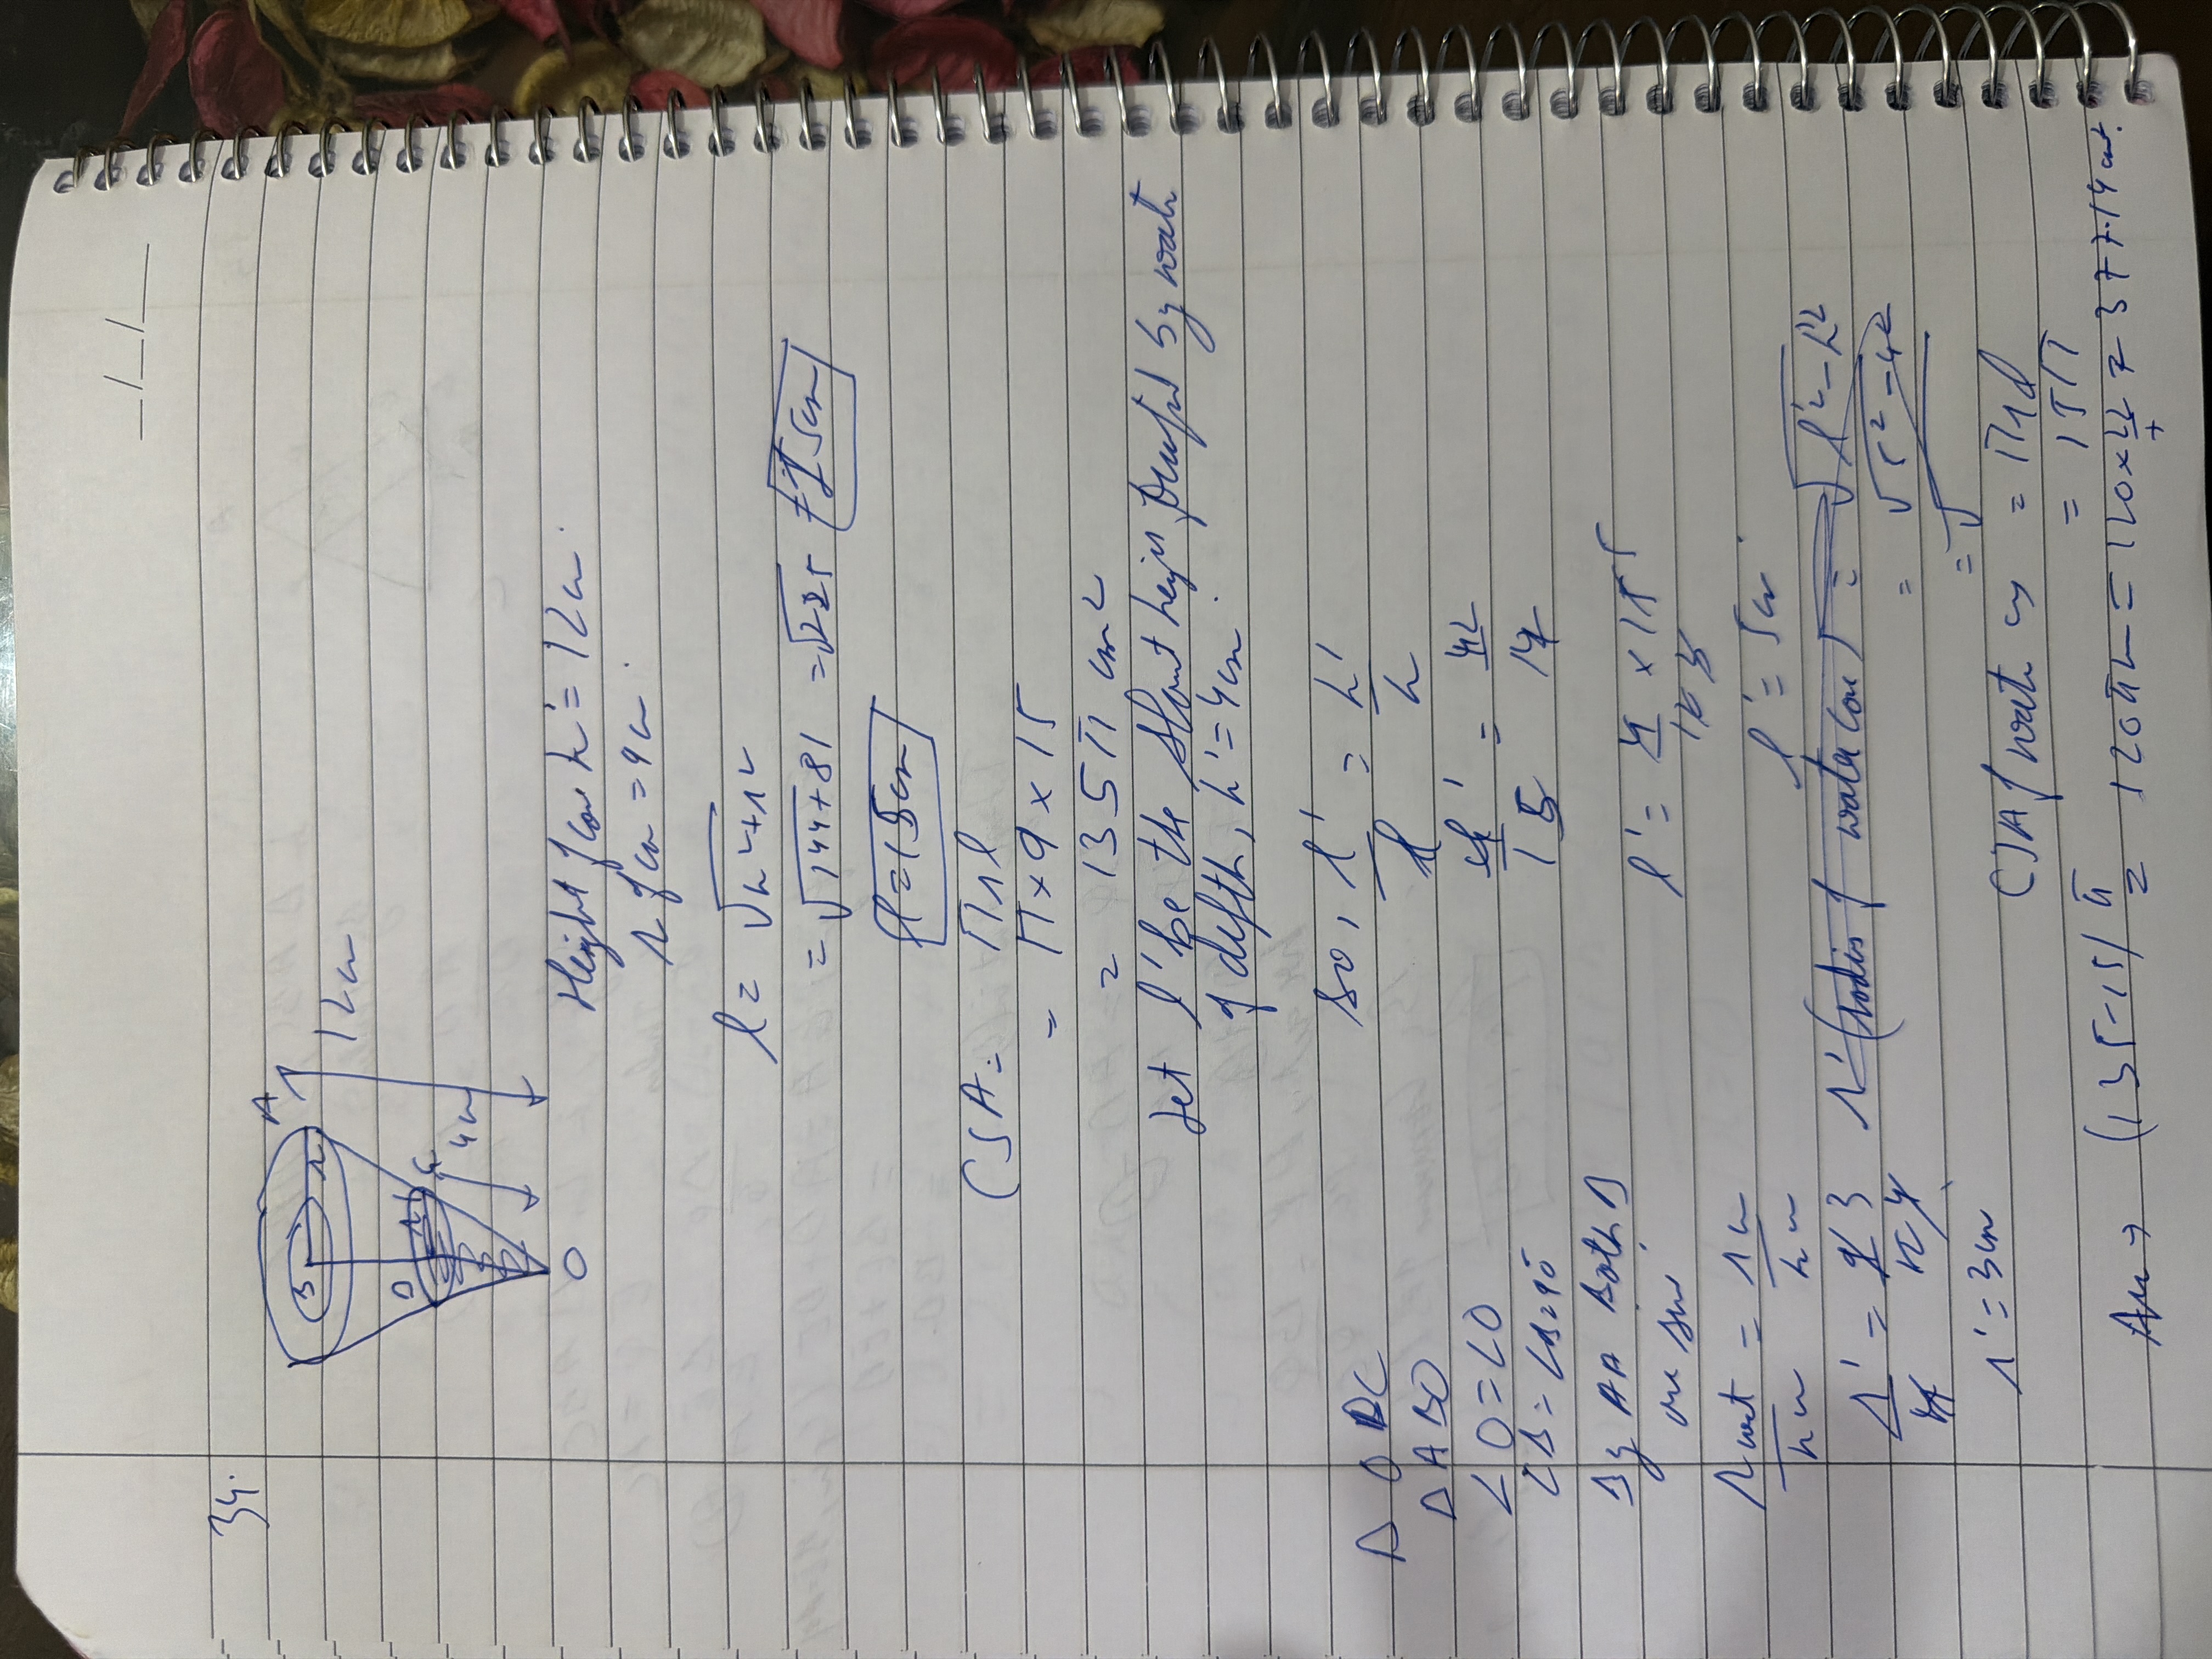 __/__/__
34.
A
B
r
12cm
D
r'
C
4cm
O
Height of cone h' = 12cm.
r of cone = 9cm.
l = √h²+r²
= √144+81 = √225 15cm
l = 15cm
CSA = πrl
= π×9×15
= 135π cm²
Let l' be the slant height by wate
of depth, h' = 4cm.
so, l'/l = h'/h
l'/15 = 4/12
l' = 4/12 × 15
l' = 5cm.
Δ ODC
Δ ABO
∠O = ∠O
∠D = ∠B = 90
By AA Both Δ
are sim
r wat/h w = r c/h c
r'/4 = 9/12
r' = 3cm
r' (radius of water cone) = √l'²-h'²
= √5²-4²
= √
CSA of wate = πrl
= 15π
Ans → (135-15)π
= 120π = 120×22/7 = 377.14cm².